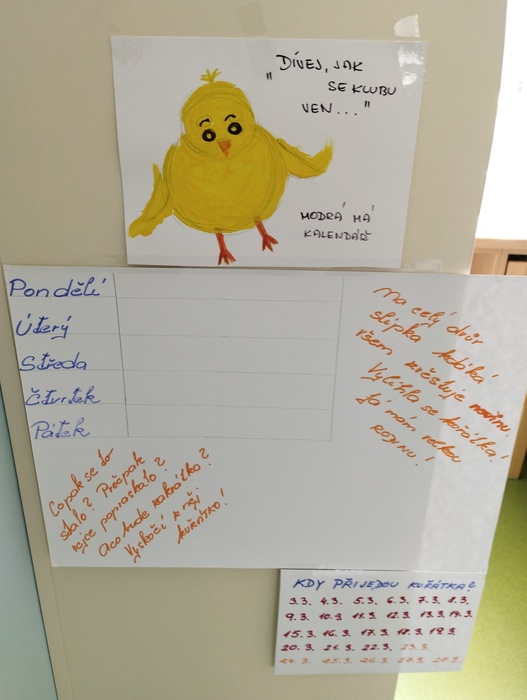 „DÍVEJ, JAK
SE KLUBU
VEN..."
MODRÁ MÁ
KALENDÁŘ
Pondělí
Úterý
Středa
Čtvrtek
Pátek
Na celý dvůr
slípka kdáká
všem zvěstuje novinu.
Vylíhla se kuřátka!
Já mám velkou
rodinu!
Copak se to
stalo? Pročpak
vejce popraskalo?
A co bude zakrátko?
Vyskočí z něj
kuřátko!
KDY PŘIJEDOU KUŘÁTKA?
3.3. 4.3. 5.3. 6.3. 7.3. 8.3.
9.3. 10.3. 11.3. 12.3. 13.3. 14.3.
15.3. 16.3. 17.3. 18.3. 19.3.
20.3. 21.3. 22.3. 23.3.
24.3. 25.3. 26.3. 27.3. 28.3.